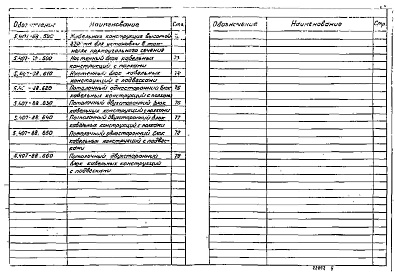 Обозначение Наименование Стр.
Кабельная конструкция высотой
для установки в тон-
неле прямоугольного сечения
5.407-88.600 Настенный блок кабельных 73
конструкций с полками
Настенный блок кабельных 74
конструкций с подвесками
Потолочный односторонний блок
кабельных конструкций с полками
5.407-88.630 Потолочный двухсторонний блок 76
кабельных конструкций с полками
5.407-88.640 Потолочный двухсторонний блок 77
кабельных конструкций с полками
5.407-88.650 Потолочный односторонний блок 78
кабельных конструкций с подвес-
ками
5.407-88.660 Потолочный двухсторонний 79
блок кабельных конструкций
с подвесками
Обозначение Наименование Стр.